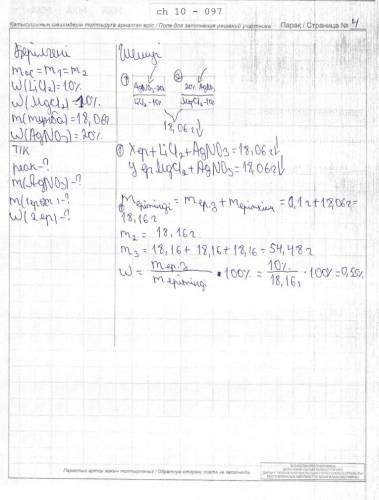 ch 10 - 097
Қатысушының шешімдерін толтыруға арналған өріс / Поле для заполнения решений участника
Парақ / Страница № 4
Берілгені
Шешуі
m₁ = m₂
W(LiCl₂) = 10%
W(MgCl₂) = 10%
m(тұнба) = 18,06г
W(AgNO₃) = 20%
Т/К
реак - ?
m(AgNO₃) - ?
W(2 ер) - ?
① AgNO₃-20%
LiCl₂-10%
② 20% AgNO₃
MgCl₂-10%
18,06г↓
① X ер + LiCl₂ + AgNO₃ = 18,06г↓
У ер MgCl₂ + AgNO₃ = 18,06г↓
m ерітінді = m ер.з + m еріткіш = 0,1 + 18,06г =
18,16г
m₂ = 18,16г.
m₃ = 18,16 + 18,16 + 18,16 = 54,48г
W = m ер.з / m ерітінді • 100% = 10% / 18,16г • 100% = 0,55%
Парақтың артқы жағын толтырмаңыз / Обратную сторону листа не заполнять